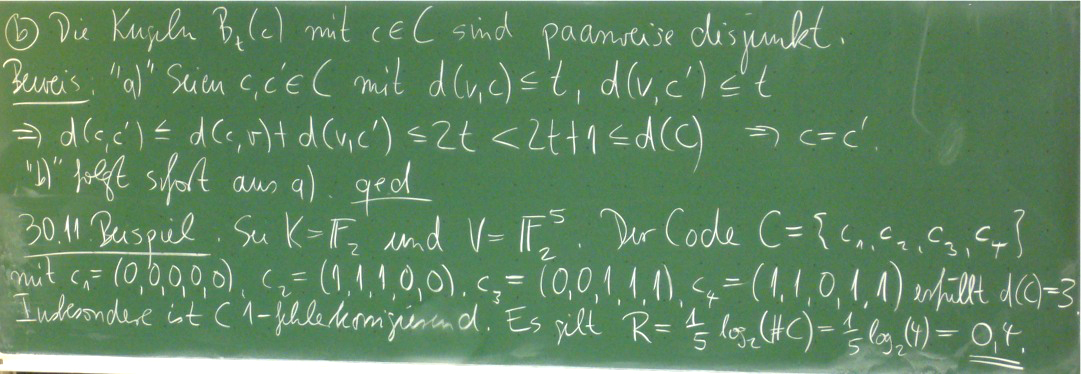 ⓑ Die Kugeln B_t(c) mit c∈C sind paarweise disjunkt.
Beweis. "a)" Seien c,c'∈C mit d(v,c) ≤ t, d(v,c') ≤ t
⇒ d(c,c') ≤ d(c,v)+d(v,c') ≤ 2t < 2t+1 ≤ d(C) ⇒ c=c'.
"b)" folgt sofort aus a). qed
30.11 Beispiel. Sei K=𝔽_2 und V=𝔽_2^5. Der Code C={c_1, c_2, c_3, c_4}
mit c_1=(0,0,0,0,0), c_2=(1,1,1,0,0), c_3=(0,0,1,1,1), c_4=(1,1,0,1,1) erfüllt d(C)=3
Insbesondere ist C 1-fehlerkorrigierend. Es gilt R=1/5 log_2(#C)=1/5 log_2(4)=0,4.